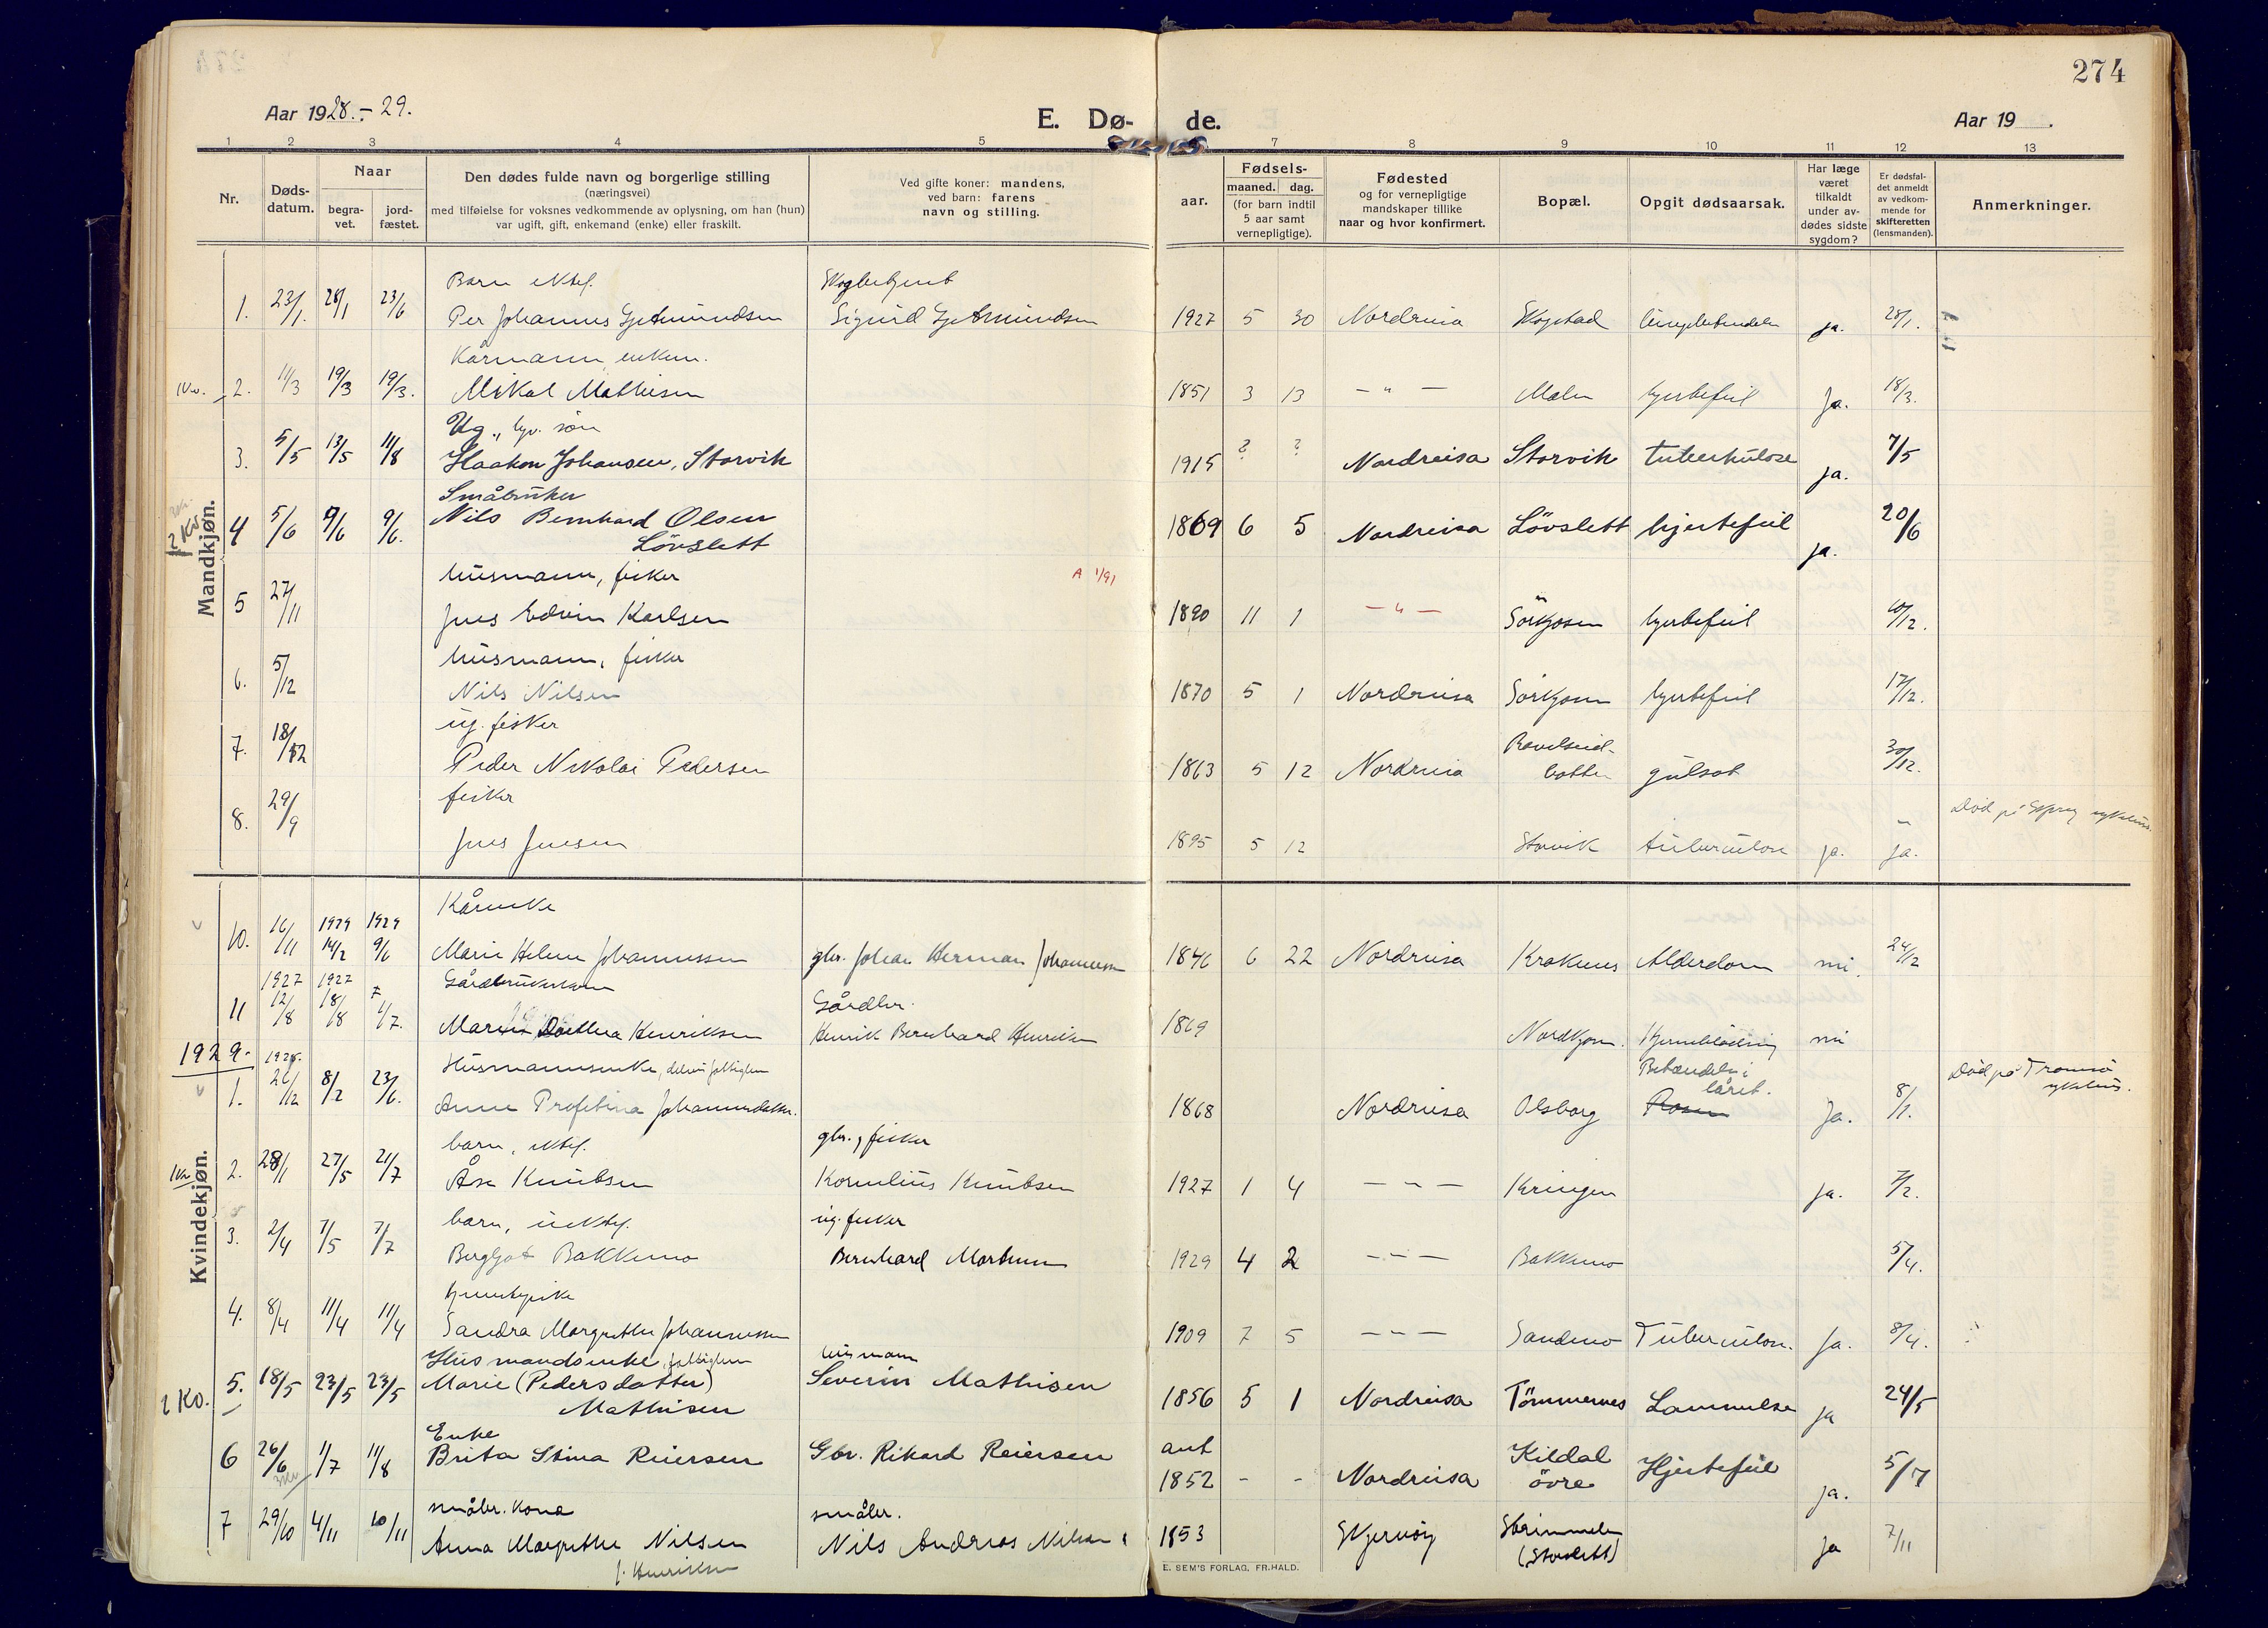 274
Aar 1928.- 29.
E. Dø- de.
Aar 19 .
1 2 3 4 5 7 8 9 10 11 12 13
Nr.
Døds-
datum.
Naar
begra-
vet.
jord-
fæstet.
Den dødes fulde navn og borgerlige stilling
(næringsvei)
med tilføielse for voksnes vedkommende av oplysning, om han (hun)
var ugift, gift, enkemand (enke) eller fraskilt.
Ved gifte koner: mandens,
ved barn: farens
navn og stilling.
aar.
Fødsels-
maaned. dag.
(for barn indtil
5 aar samt
vernepligtige).
Fødested
og for vernepligtige
mandskaper tillike
naar og hvor konfirmert.
Bopæl.
Opgit dødsaarsak.
Har læge
været
tilkaldt
under av-
dødes sidste
sygdom?
Er dødsfal-
det anmeldt
av vedkom-
mende for
skifteretten
(lensmanden).
Anmerkninger.
Mandkjøn.
Barn
1. 23/1. 28/1 23/6 Per Johannes Sigurd 1927 5 30 Nordreisa Skogstad ja. 28/1.
Kårmann, enkem.
2. 11/3 19/3 19/3. Mikal Mathisen 1851 3 13 - " - Malen hjertefeil Ja. 18/3.
Ug., gv. søn
3. 5/5 13/5 11/8 Haakon Johansen, Storvik 1915 ? ? Nordreisa Storvik tuberkulose ja. 7/5
Småbruker
2 Kv. 4 5/6 9/6 9/6. Nils Bernhard Olsen 1869 6 5 Nordreisa Lövslett hjertefeil ja. 20/6
Lövslett
husmann, fisker A 1/91
5 27/11 Jens Edvin Karlsen 1890 11 1 - " - Sörkjosen hjertefeil 10/12.
husmann, fisker
6. 5/12 Nils Nilsen 1870 5 1 Nordreisa Sörkjosen hjertefeil 17/12.
ug. fisker
7. 18/12 Peder Nikolai Pedersen 1863 5 12 Nordreisa Ravelseid-
botten gulsot 30/12.
fisker
8. 29/9 Jens Jensen 1895 5 12 Storvik tuberculose ja. ja. Död på sykehus.
Kvindekjøn.
Kårenke
10. 16/11 1929 14/2 1929 9/6 Marie Helene Johannessen gbr. Johan Herman Johannessen 1846 6 22 Nordreisa Krakenes Alderdom nei. 24/12
Gårdbrukerkone Gårdbr.
11 1927 12/8 1927 18/8 1/7. Henriksen Henrik Bernhard Henriksen 1869 Nordkjosen. Hjerneblödning nei
1929.
Husmannsenke,
1. 1928. 26/12 8/2 23/6. Anne Profetina Johannesdatter. 1868 Nordreisa Olsborg Betændelse i
låret. Ja. 8/1. Död på Tromsö
sykehus.
barn, gbr., fisker
2. 28/1 27/5 21/7 Åse Knutsen Kornelius Knutsen 1927 1 4 - " - Kringen Ja. 7/2.
barn, uektef. ug. fisker
3. 2/4 7/5 7/7 Bergljot Bakkemo Bernhard Mortensen 1929 4 2 - " - Bakkemo 5/4.
tjenestepike
4. 8/4 11/4 11/4 Sandra Margrethe Johannessen 1909 7 5 - " - Sandmo Tuberculose. Ja. 8/4.
Husmandsenke, fattiglem husmann
2 Kv. 5. 18/5 23/5 23/5 Marie (Pedersdatter) Severin Mathisen 1856 5 1 Nordreisa Tömmernes Lammelse ja 24/5
Mathisen
Enke
6 26/6 1/7 11/8 Brita Stina Reiersen Gbr. Rikard Reiersen ant
1852 - - Nordreisa Kildal
övre Hjertefeil ja. 5/7
småbr. kone småbr.
7 29/10 4/11 10/11 Anna Margrethe Nilsen Nils Andreas Nilsen 1853 Skjervöy
(Storslett) ja 7/11
f. Henriksen
E. SEM'S FORLAG, FR.HALD.